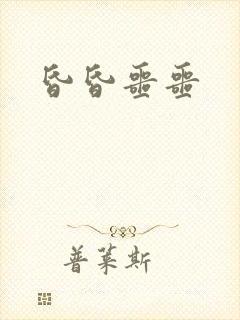 昏昏噩噩
普莱斯